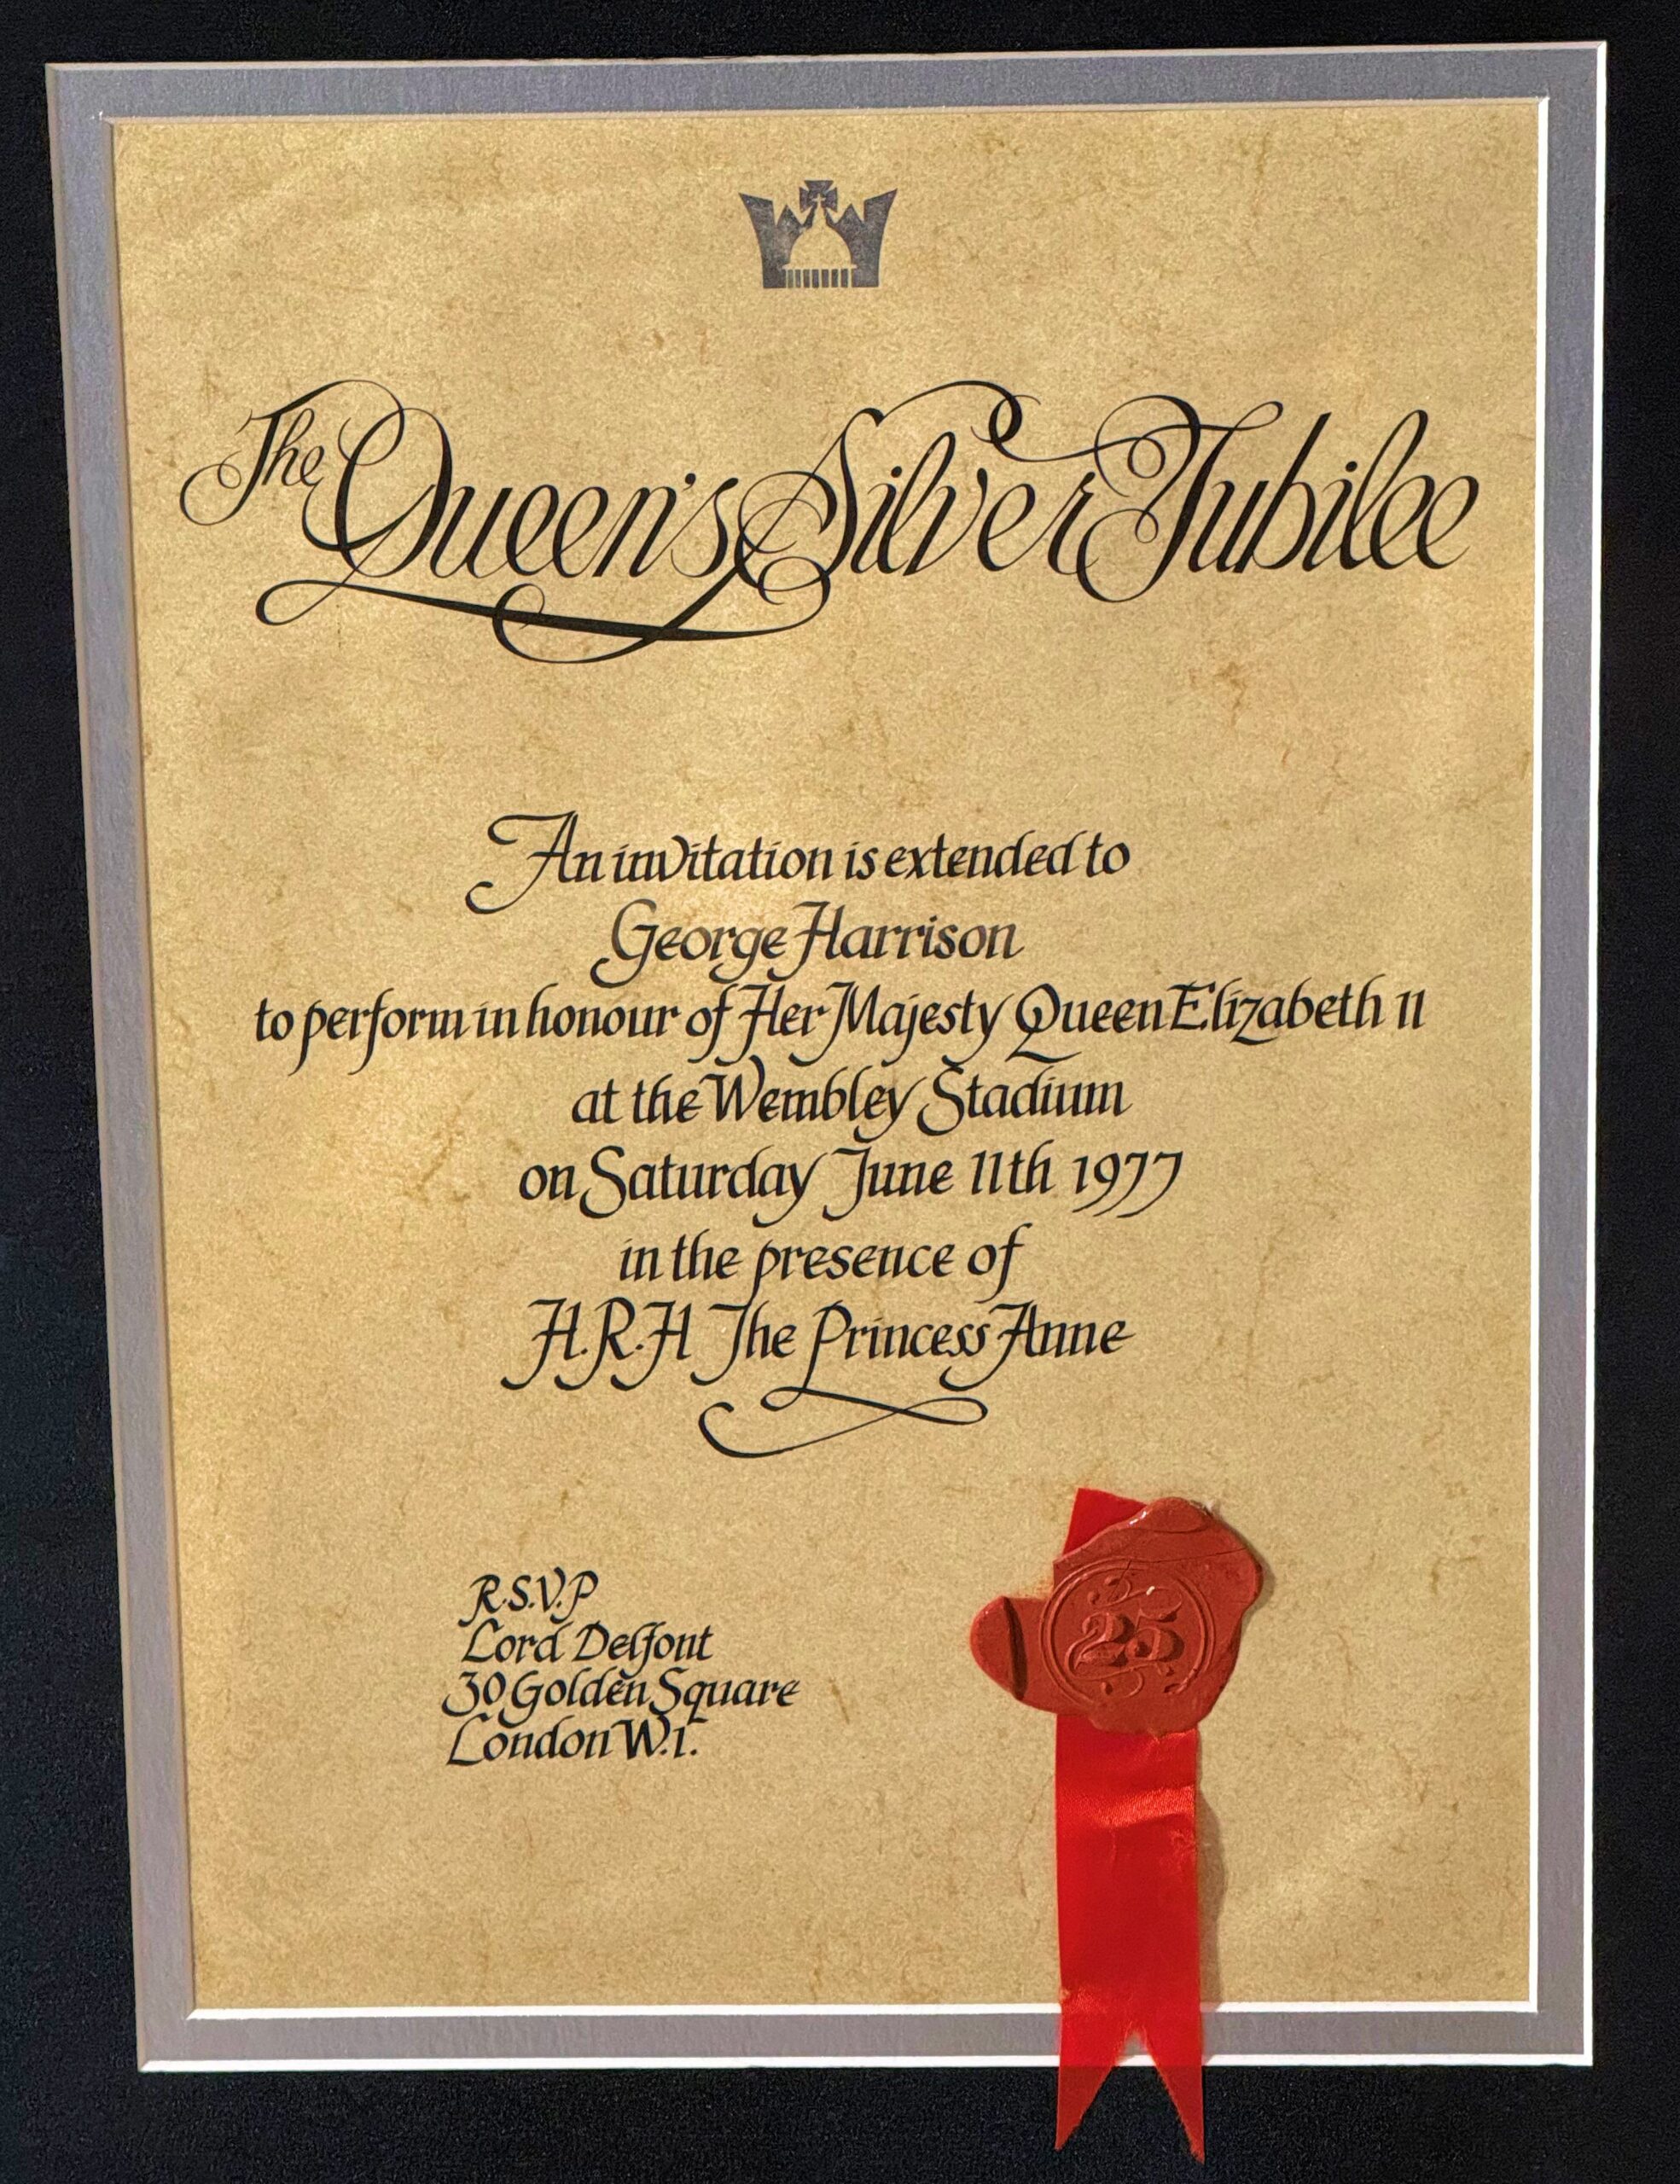 The Queen's Silver Jubilee
An invitation is extended to
George Harrison
to perform in honour of Her Majesty Queen Elizabeth II
at the Wembley Stadium
on Saturday June 11th 1977
in the presence of
H.R.H The Princess Anne
R.S.V.P
Lord Delfont
30 Golden Square
London W.1.
25